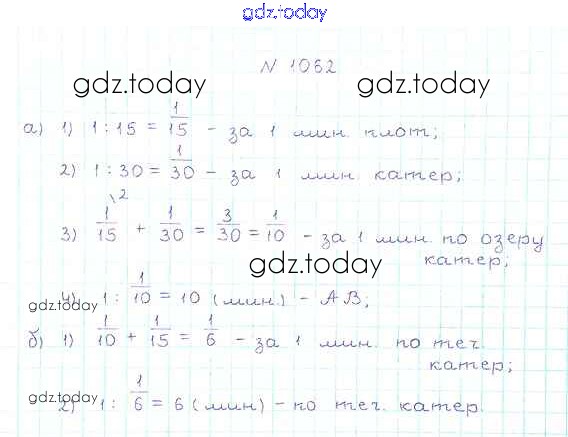 gdz.today
N 1062
gdz.today gdz.today
а) 1) 1 : 15 = 1/15 - за 1 мин. плот;
2) 1 : 30 = 1/30 - за 1 мин. катер;
3) 1/15 \2 + 1/30 = 3/30 = 1/10 - за 1 мин. по озеру
катер;
gdz.today
gdz.today
4) 1 : 1/10 = 10 (мин.) - АВ;
б) 1) 1/10 + 1/15 = 1/6 - за 1 мин. по теч.
катер;
gdz.today
2) 1 : 1/6 = 6 (мин) - по теч. катер.